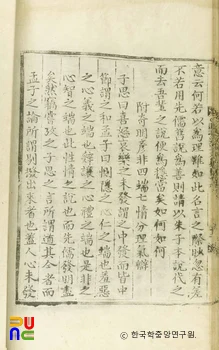 意云何若以爲理雖如此名言之際眇忽有差
不若用先儒舊說爲善則請以朱子本說代之
而去吾輩之說便爲穩當矣如何如何
附奇明彦非四端七情分理氣辯
子思曰喜怒哀樂之未發謂之中發而皆中
節謂之和孟子曰惻隱之心仁之端也羞惡
之心義之端也辭讓之心禮之端也是非之
心智之端也此性情之說也而先儒發明盡
矣然竊嘗攷之子思之言所謂道其全者而
孟子之論所謂剔撥出來者也蓋人心未發
ⓒ한국학중앙연구원.